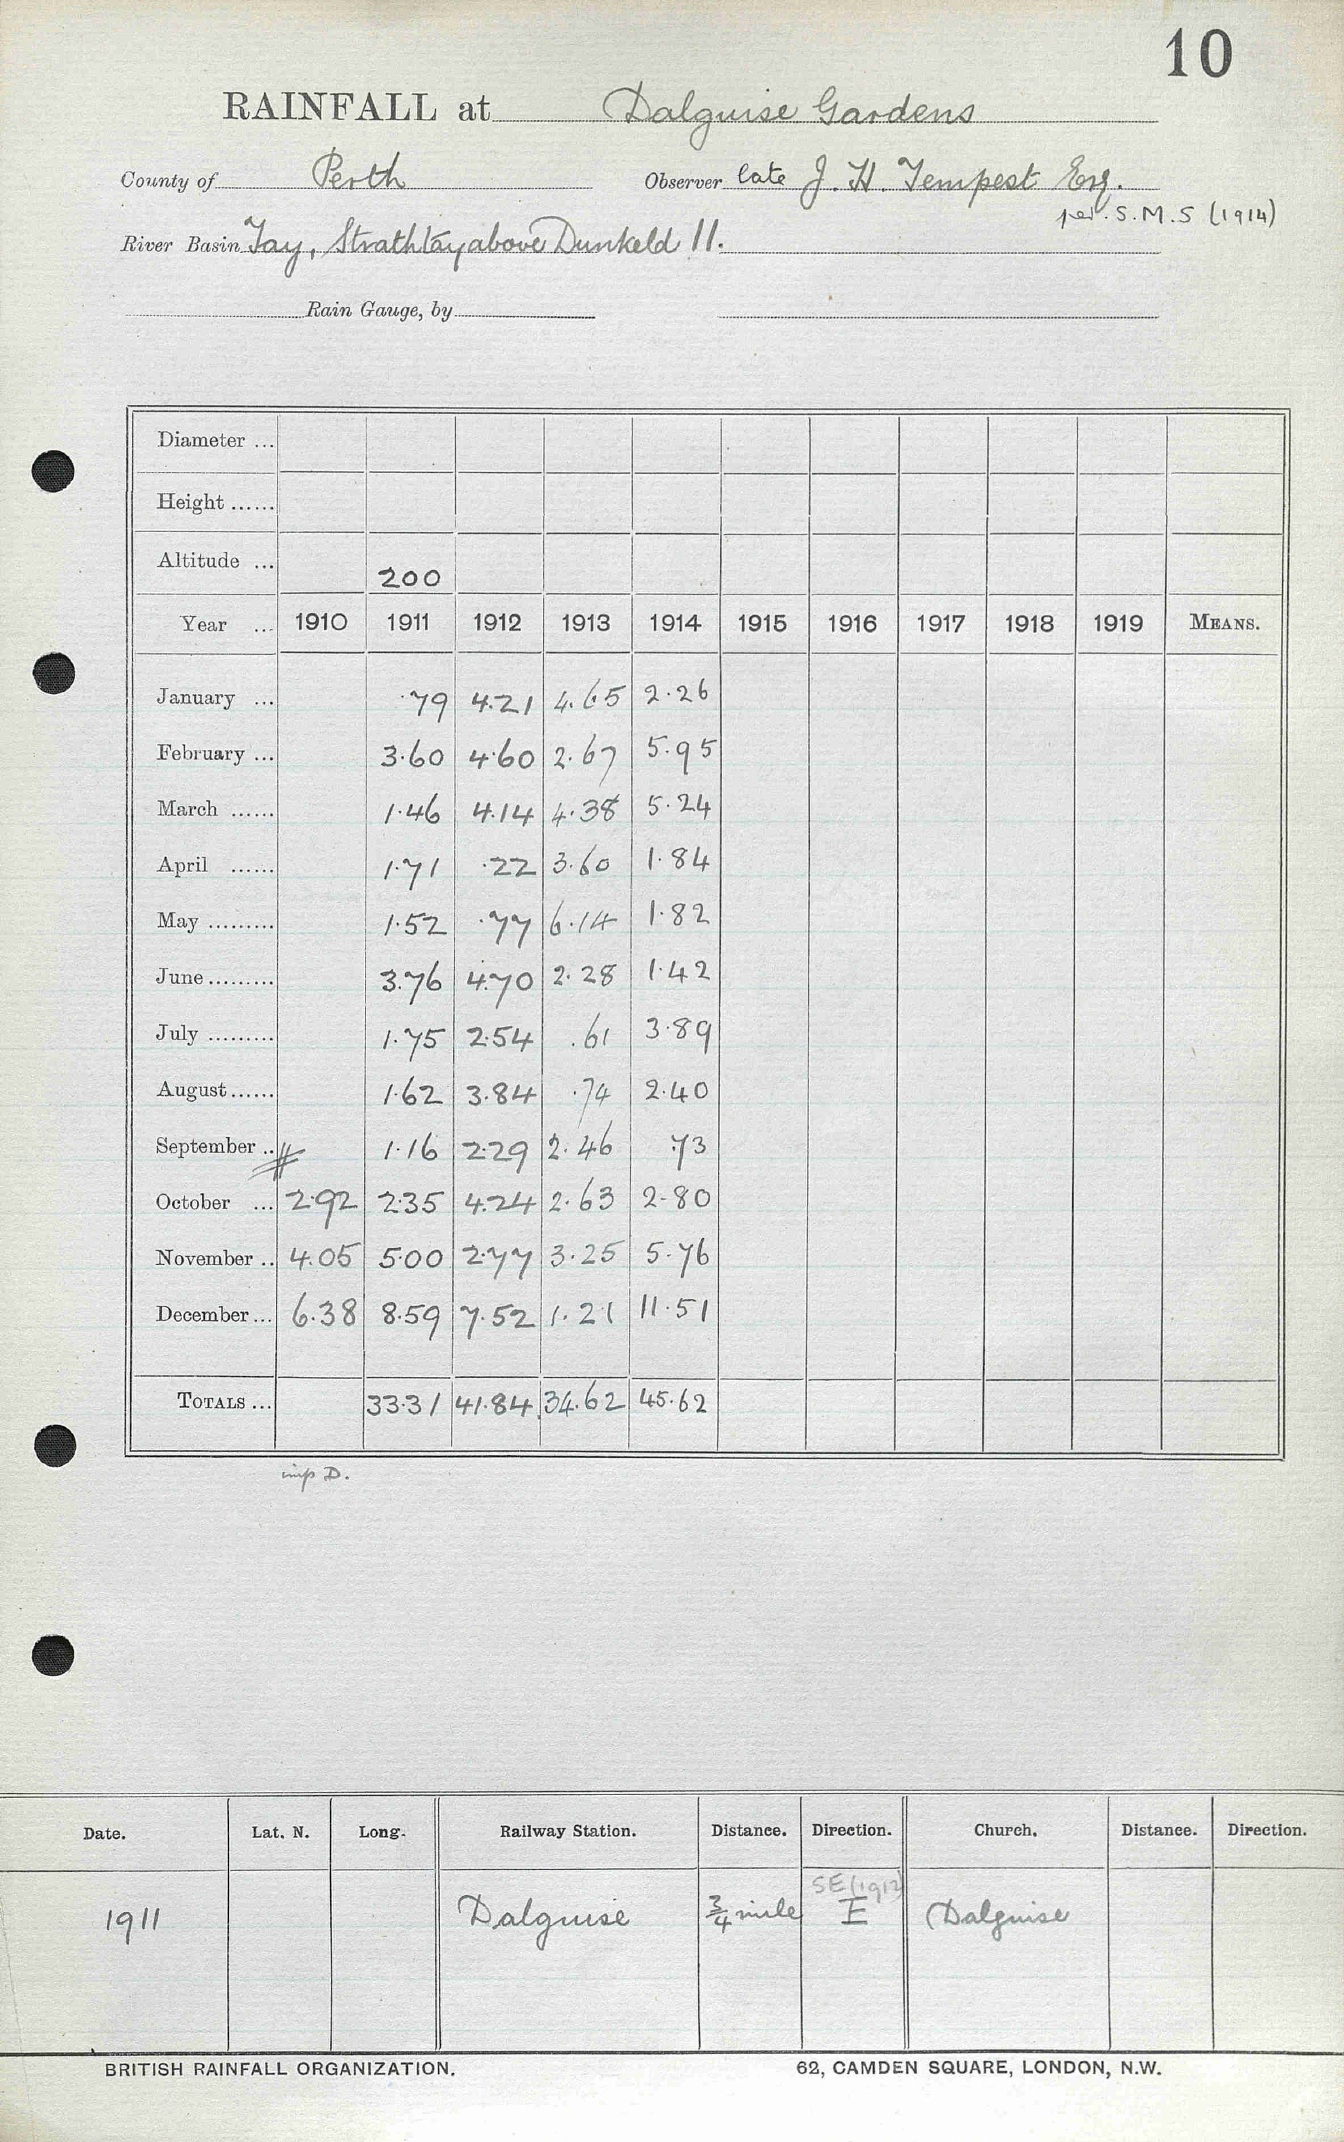 10
RAINFALL at Dalguise Gardens
County of Perth Observer late J. H. Tempest Esq.
per. S.M.S (1914)
River Basin Tay, Strathtay above Dunkeld 11.
Rain Gauge, by
Diameter ...
Height ......
Altitude ... 200
Year ... 1910 1911 1912 1913 1914 1915 1916 1917 1918 1919 MEANS.
January ... .79 4.21 4.65 2.26
February ... 3.60 4.60 2.67 5.95
March ...... 1.46 4.14 4.38 5.24
April ...... 1.71 .22 3.60 1.84
May ......... 1.52 .77 6.14 1.82
June ......... 3.76 4.70 2.28 1.42
July ......... 1.75 2.54 .61 3.89
August ...... 1.62 3.84 .74 2.40
September .. 1.16 2.29 2.46 .73
October ... 2.92 2.35 4.24 2.63 2.80
November .. 4.05 5.00 2.77 3.25 5.76
December ... 6.38 8.59 7.52 1.21 11.51
TOTALS ... 33.31 41.84 34.62 45.62
imp D.
Date. Lat. N. Long. Railway Station. Distance. Direction. Church. Distance. Direction.
SE (1912)
1911 Dalguise 3/4 mile E Dalguise
BRITISH RAINFALL ORGANIZATION. 62, CAMDEN SQUARE, LONDON, N.W.